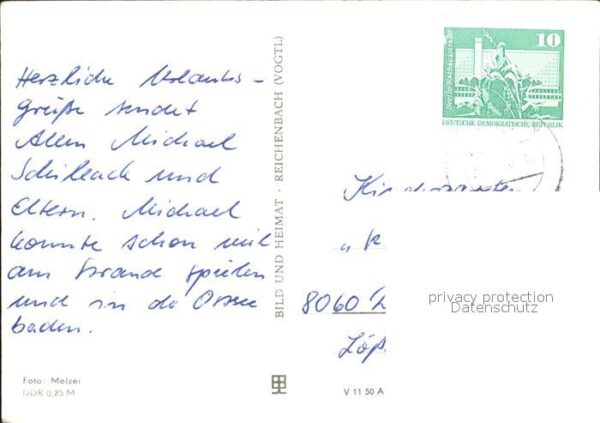 Herzliche Urlaubs-
grüße sendet
Allen Michael
und
Eltern. Michael
konnte schon mit
am Strand spielen
und in der Ostsee
baden.
Foto: Melzer
DDR 0,25 M
BILD UND HEIMAT · REICHENBACH (VOGTL)
V 11 50 A
10
Berlin, Rathausstraße
DEUTSCHE DEMOKRATISCHE REPUBLIK
8060
privacy protection
Datenschutz